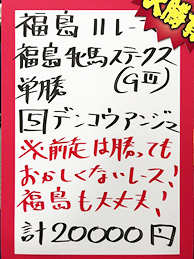 大勝負
福島11レース
福島牝馬ステークス
(GⅢ)
単勝
5 デンコウアンジュ
※前走は勝っても
おかしくないレース!
福島も大丈夫!
計20000円